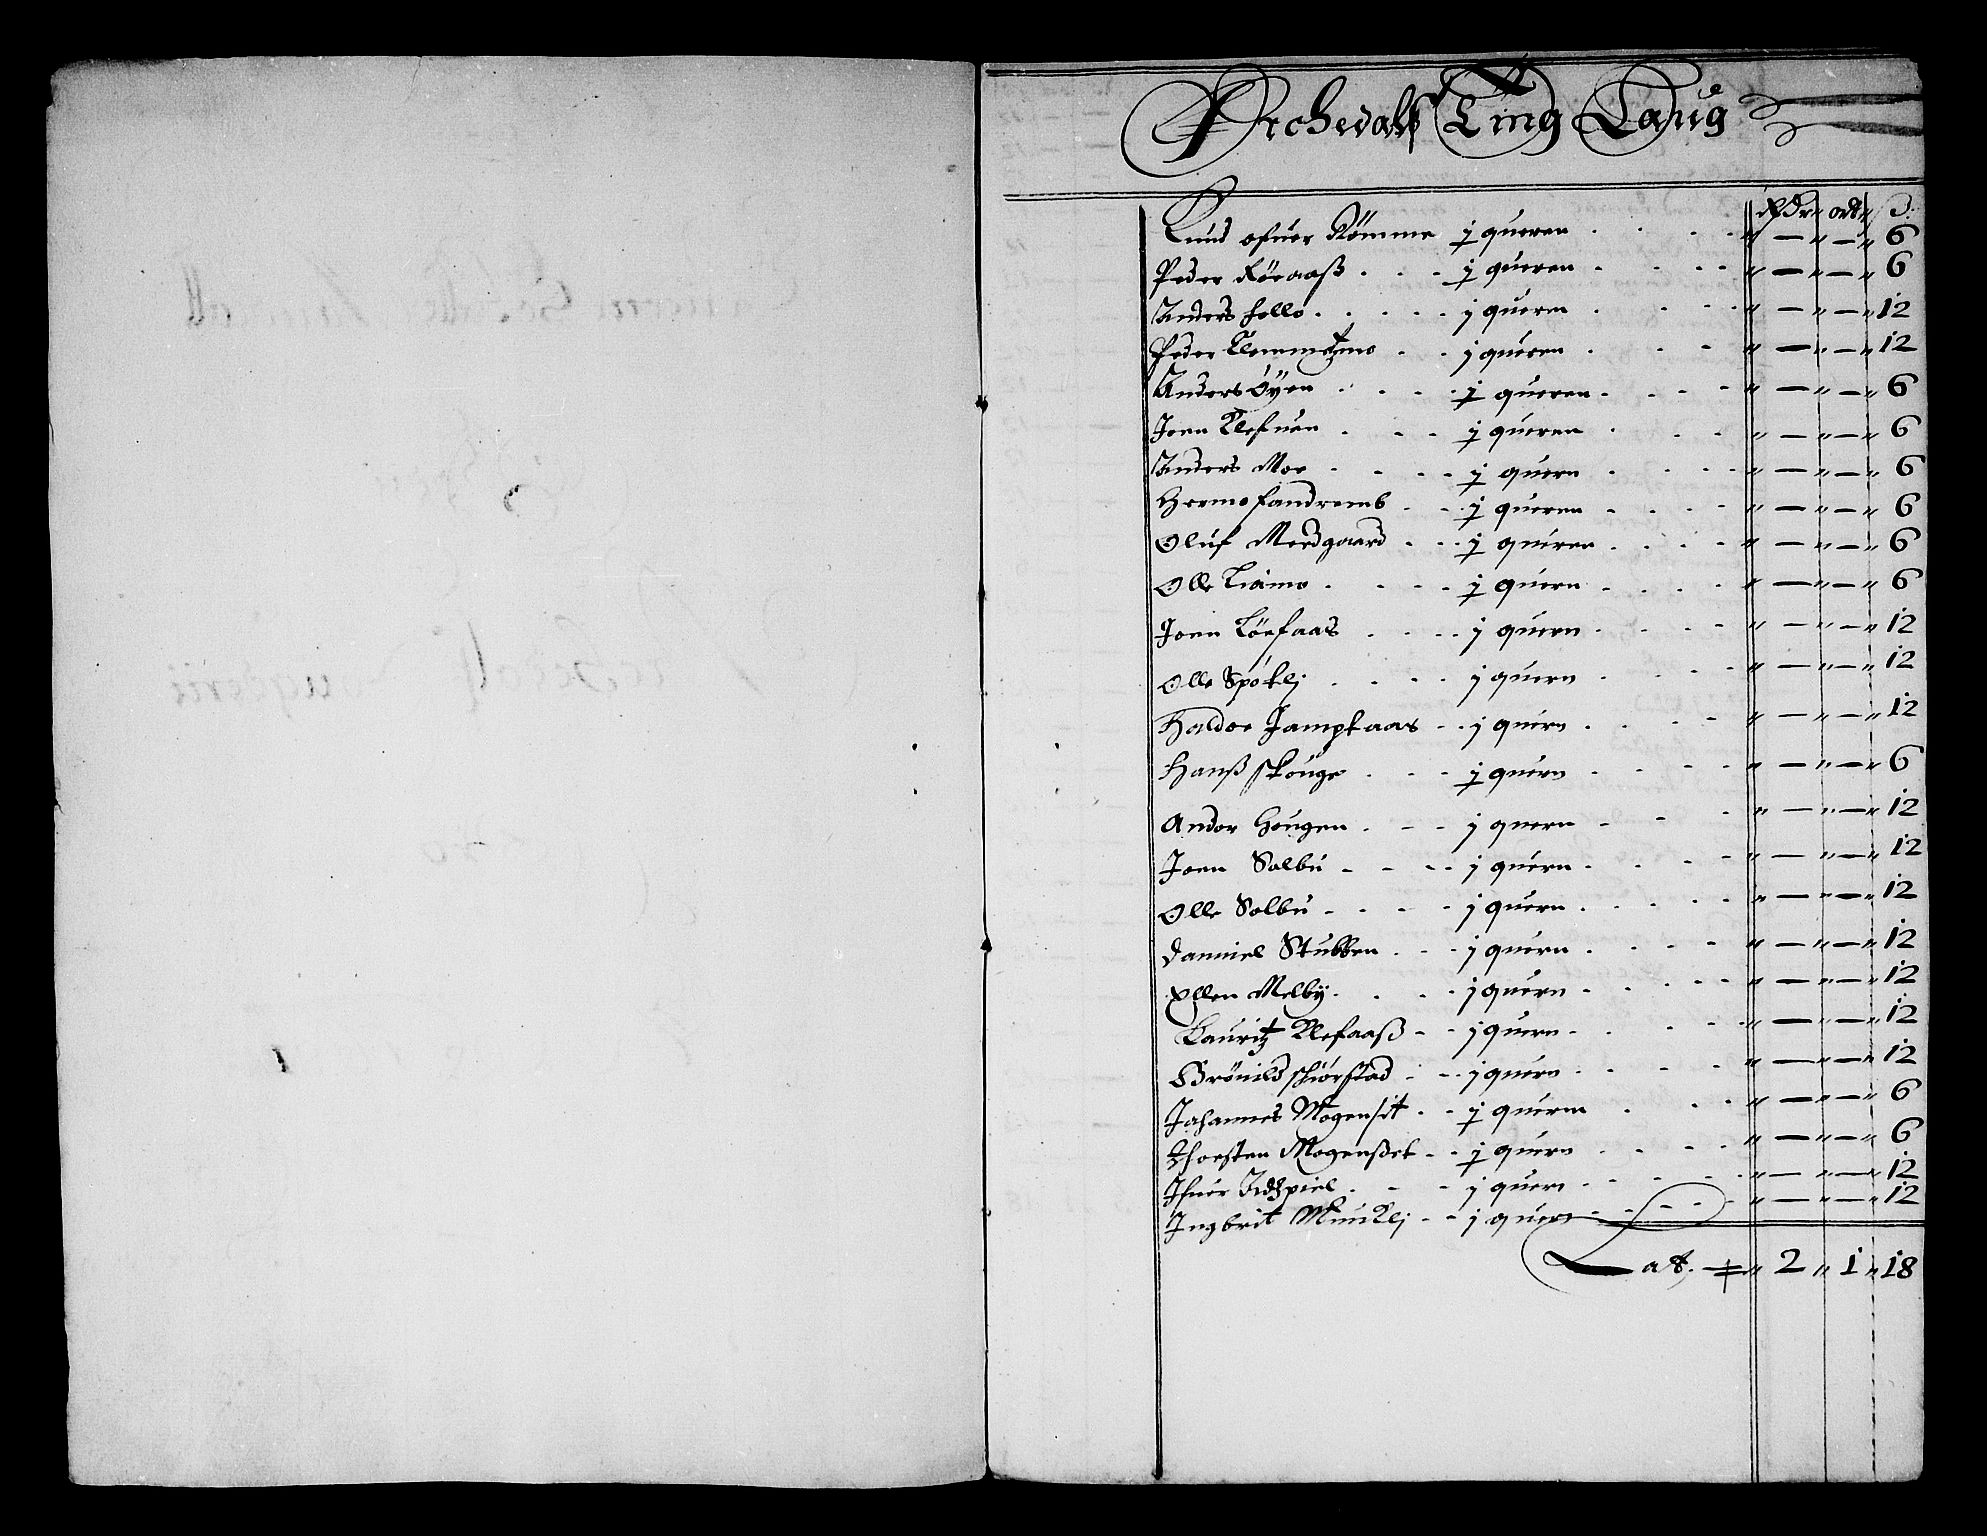 Orchedals Ting Laug
Rdr " ort " ß
Knud ofuer Rømme ɟ queren . . . . " — " — " 6
Peder Røeaaß . . . ɟ queren . . . . " — " — " 6
Anders follo . . . . . j quern . . . " — " — " 12
Peder Klemmetzmo . . j queren . . . " — " — " 12
Anders Øyen . . . . ɟ queren . . . . " — " — " 6
Joen Klefuen . . . ɟ queren . . . " — " — " 6
Anders Moe . . . . ɟ quern . . . . " — " — " 6
Hermo fandremb . . . ɟ queren . . . . " — " — " 6
Oluf Merdgaard . . . ɟ queren . . . . " — " — " 6
Olle Liamo . . . . ɟ quern . . . . " — " — " 6
Joen Löefaas . . . . j quern . . . . " — " — " 12
Olle Spøklj . . . . j quern . . . . " — " — " 12
Haldor Jampkaas . . j quern . . . . " — " — " 12
Hanß skouge . . . ɟ quern . . . . " — " — " 6
Andor Hougen . . . j quern . . . " — " — " 12
Joen Solbu . . . . j quern . . . . " — " — " 12
Olle Solbu . . . . j quern . . . . . " — " — " 12
Danniel Stubben . . . j quern . . . . " — " — " 12
Ellen Melby . . . . j quern . . . . . " — " — " 12
Lauritz Klefaaß . . j quern . . . . " — " — " 12
Grönild skiørstad . . . j quern . . . . " — " — " 12
Johannes Mogensit . . ɟ quern . . . " — " — " 6
Thorsten Mogenßet . . ɟ quern . . . . " — " — " 6
Ifuer Idtzpiel . . . j quern . . . . . " — " — " 12
Ingbrit Muuklj . . j quern . . . . " — " — " 12
Lat. " 2 " 1 " 18